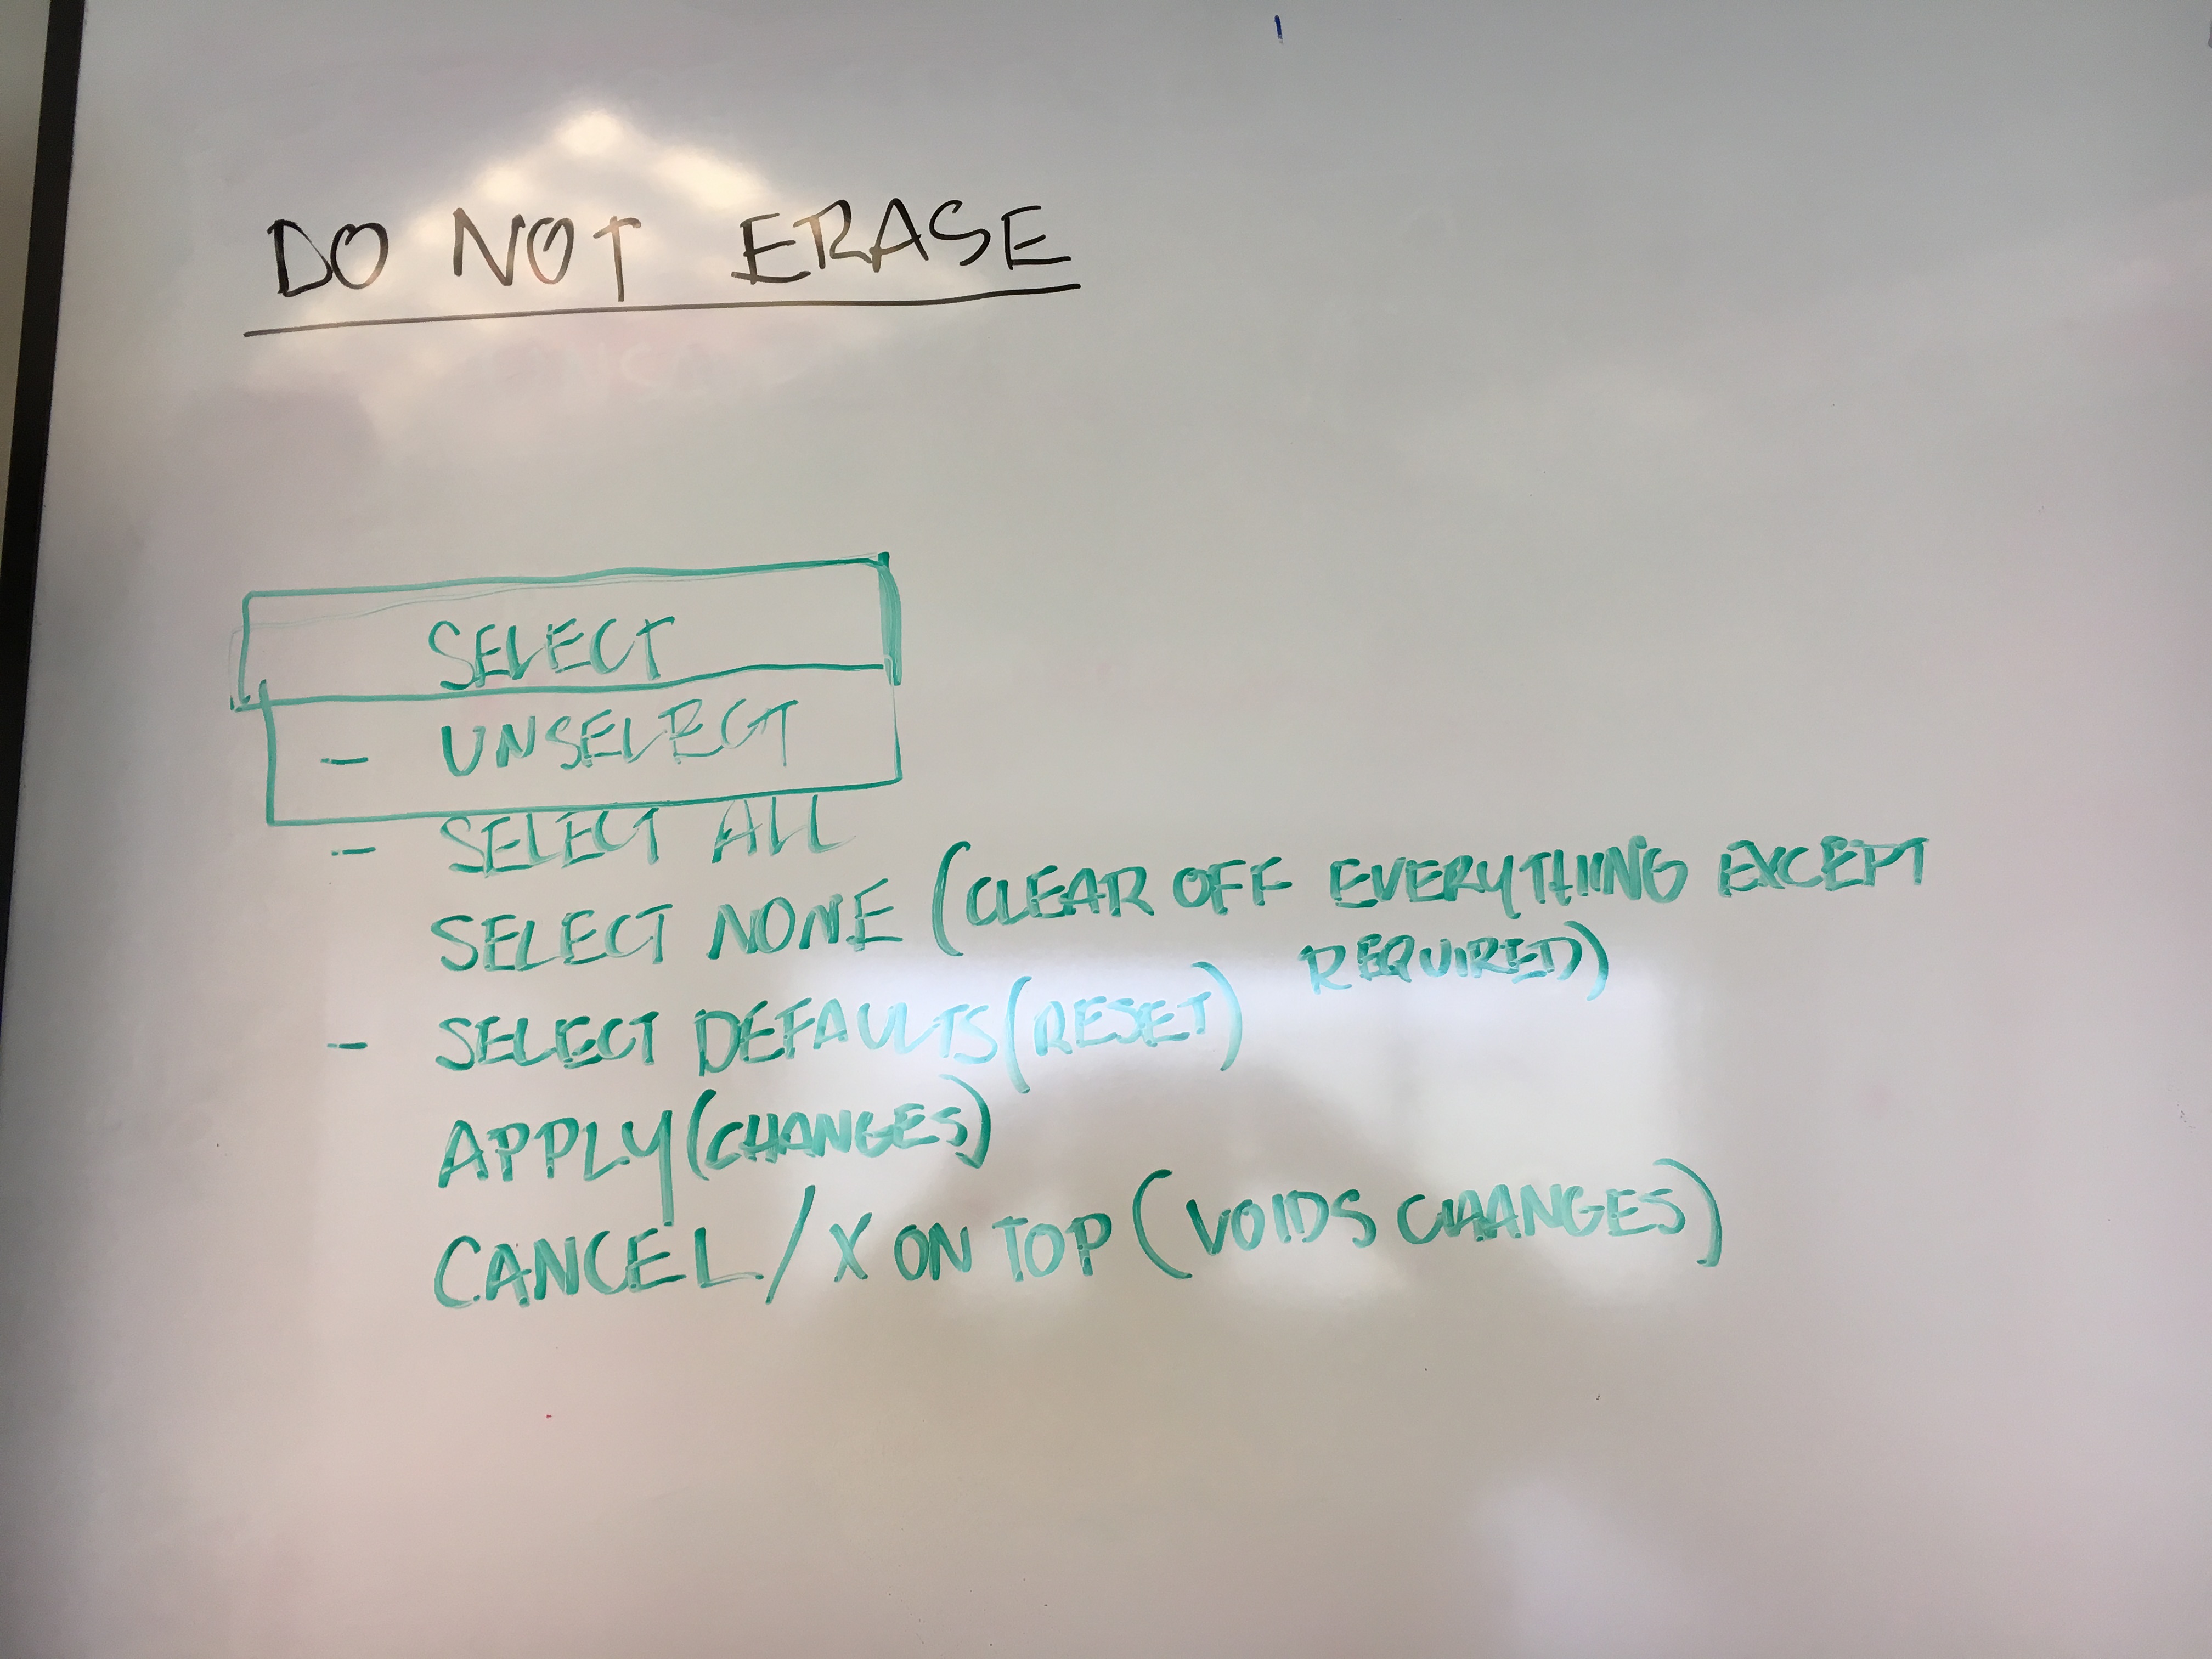 DO NOT ERASE
SELECT
- UNSELECT
- SELECT ALL
SELECT NONE (CLEAR OFF EVERYTHING EXCEPT
REQUIRED)
- SELECT DEFAULTS (RESET)
APPLY (CHANGES)
CANCEL / X ON TOP (VOIDS CHANGES)